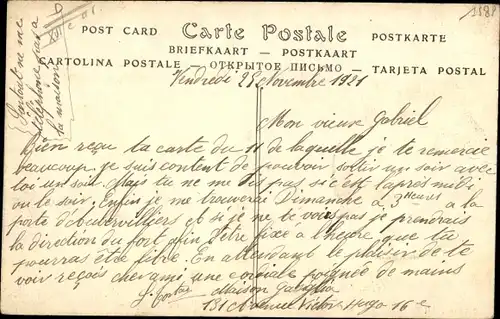 D
XVII
1181
POST CARD Carte Postale POSTKARTE
BRIEFKAART - POSTKAART
CARTOLINA POSTALE - ОТКРЫТОЕ ПИСЬМО - TARJETA POSTAL
Surtout ne me
téléphone pas à
la maison
Vendredi 28 Novembre 1921
Mon vieux Gabriel
Bien reçu ta carte du 11 de laquelle je te remercie
beaucoup. je suis content de pouvoir sortir un soir avec
toi un soir. Mais tu ne me dis pas si c'est l'après midi
ou le soir. Enfin je me trouverai Dimanche à 3 heures à la
porte d'Aubervilliers et si je ne te vois pas je prendrais
la direction du fort afin d'être fixé à l'heure que tu
pourras être libre. En attendant le plaisir de te
voir reçois cher ami une cordiale poignée de mains
Maison
131 Avenue Victor Hugo 16e